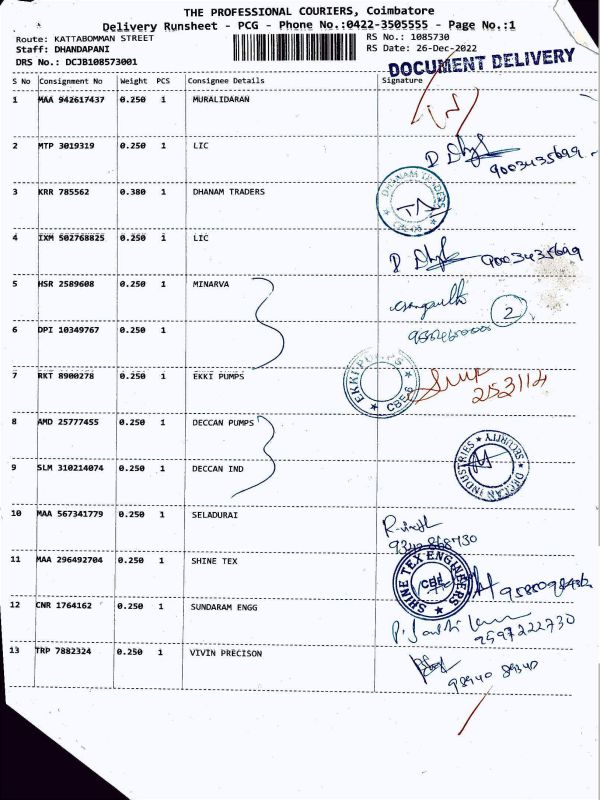 THE PROFESSIONAL COURIERS, Coimbatore
Delivery Runsheet - PCG - Phone No.:0422-3505555 - Page No.:1
Route: KATTABOMMAN STREET RS No.: 1085730
Staff: DHANDAPANI RS Date: 26-Dec-2022
DRS No.: DCJB108573001
DOCUMENT DELIVERY
S No Consignment No Weight PCS Consignee Details Signature
1 MAA 942617437 0.250 1 MURALIDARAN
2 MTP 3019319 0.250 1 LIC
9003435699
3 KRR 785562 0.380 1 DHANAM TRADERS
DHANAM TRADERS
4 IXM 502768825 0.250 1 LIC
9003435699
5 HSR 2589608 0.250 1 MINARVA
2
6 DPI 10349767 0.250 1
7 RKT 8900278 0.250 1 EKKI PUMPS
EKKI PUMPS CBE-6
253114
8 AMD 25777455 0.250 1 DECCAN PUMPS
9 SLM 310214074 0.250 1 DECCAN IND
DECCAN INDUSTRIES SECURITY
10 MAA 567341779 0.250 1 SELADURAI
11 MAA 296492704 0.250 1 SHINE TEX
SHINE TEX ENGINEERS CBE
12 CNR 1764162 0.250 1 SUNDARAM ENGG
2597222730
13 TRP 7882324 0.250 1 VIVIN PRECISON
98940 89340